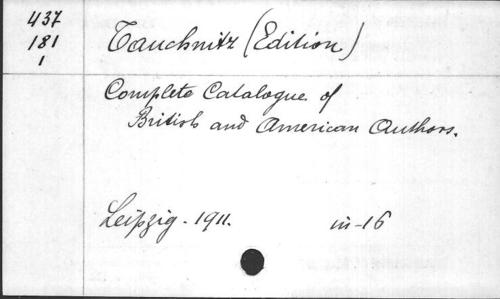 437
181
1
Tauchnitz (Edition)
Complete Catalogue of
British and American Authors.
Leipzig - 1911. in-16